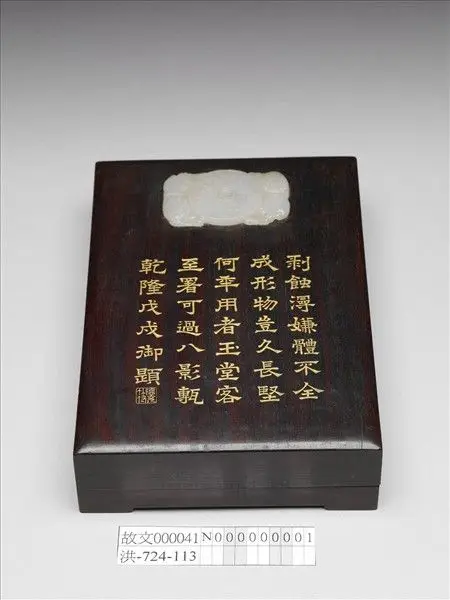 剥蝕嫌體不全
成形物豈久長堅
何年用者玉堂客
至署可過八影甎
乾隆戊戌御題
故文000041N000000001
洪-724-113